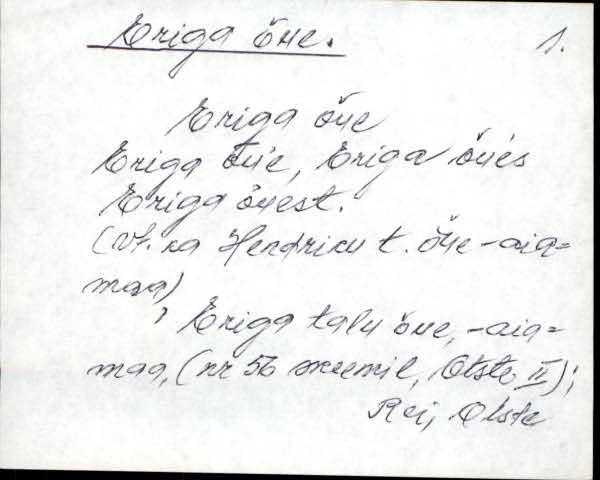 Eriga õue. 1.
Eriga õue
Eriga õu'e, Eriga õués
Eriga õuest.
(Vt. ka Hendriku t. õue-aia=
maa)
, Eriga talu õue, -aia=
maa, (nr 56 skeemil, Otste II);
Rei, Otste